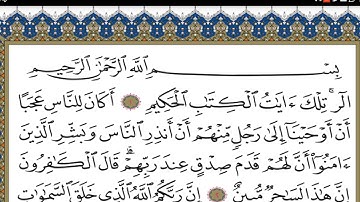 بِسْمِ اللَّهِ الرَّحْمَٰنِ الرَّحِيمِ
الٓر ۚ تِلْكَ ءَايَٰتُ الْكِتَٰبِ الْحَكِيمِ أَكَانَ لِلنَّاسِ عَجَبًا
أَنْ أَوْحَيْنَآ إِلَىٰ رَجُلٍ مِّنْهُمْ أَنْ أَنذِرِ النَّاسَ وَبَشِّرِ الَّذِينَ
ءَامَنُوٓا۟ أَنَّ لَهُمْ قَدَمَ صِدْقٍ عِندَ رَبِّهِمْ ۗ قَالَ الْكَٰفِرُونَ
إِنَّ هَٰذَا لَسَٰحِرٌ مُّبِينٌ إِنَّ رَبَّكُمُ اللَّهُ الَّذِى خَلَقَ السَّمَٰوَٰتِ